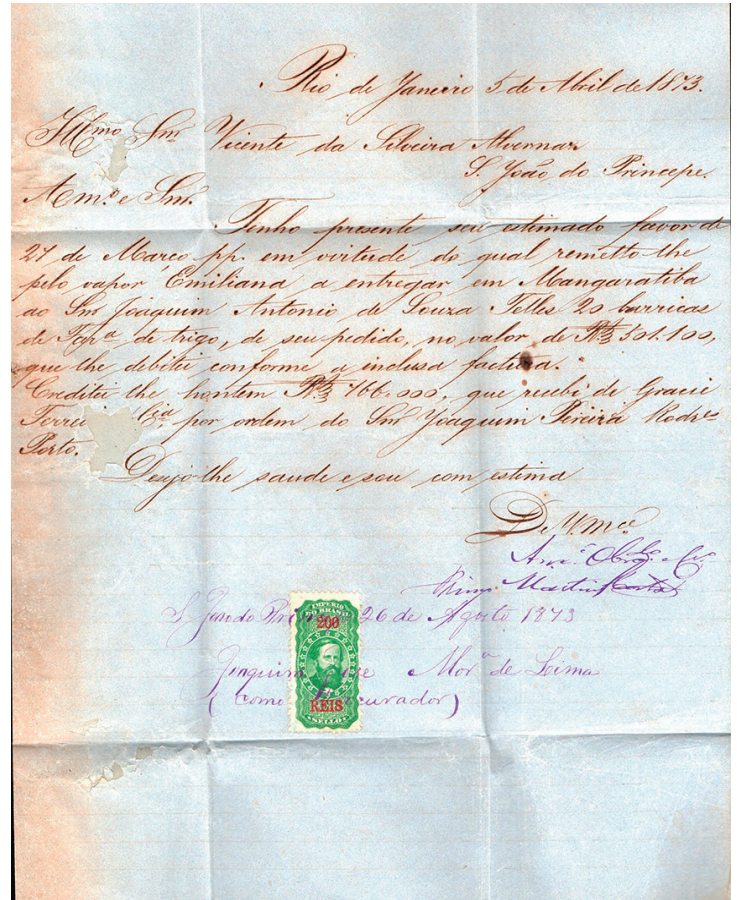 Rio de Janeiro 5 de Abril de 1873.
Illmo Snr Vicente da Silveira Alvernaz
S. João do Principe.
Amo e Snr
Tenho presente seu estimado favor de
27 de Março pp. em virtude do qual remetto lhe
pelo vapor Emiliana a entregar em Mangaratiba
ao Snr Joaquim Antonio de Souza Telles 20 barricas
de Farª de trigo, de seu pedido, no valor de Rs 501.100,
que lhe debitei conforme a inclusa factura.
Creditei lhe hontem Rs 766.000, que recebi de Gracie
por ordem do Snr Joaquim Pereira Rodres
Porto.
Desejo-lhe saude e sou com estima
De Vmce
Amo Obrdo
Martins
26 de Agosto 1873
IMPERIO
DO BRASIL
200
Joaquim Morª de Lima
REIS
SELLO